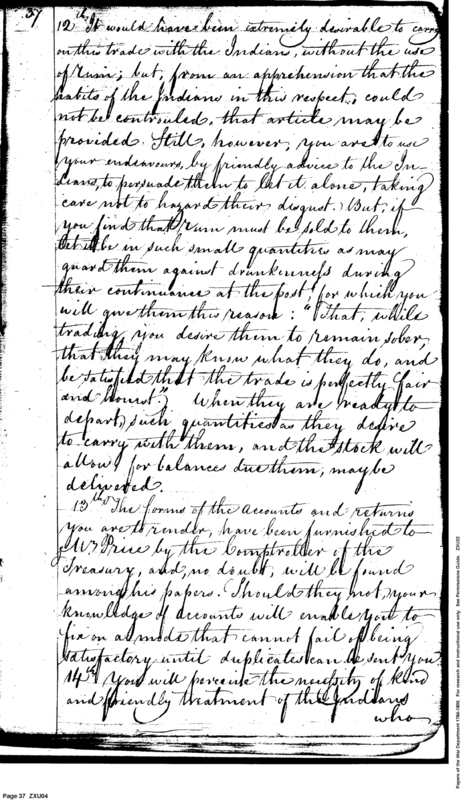 37
12th. It would have been extremely desirable to carry
on this trade with the Indians, without the use
of rum; but, from an apprehension that the
habits of the Indians in this respect, could
not be controuled, that article may be
provided. Still, however, you are to use
your endeavours, by friendly advice to the In-
dians, to persuade them to let it alone, taking
care not to hazard their disgust. But, if
you find that rum must be sold to them,
let it be in such small quantities as may
guard them against drunkenness during
their continuance at the post, for which you
will give them this reason: "That, while
trading, you desire them to remain sober,
that they may know what they do, and
be satisfied that the trade is perfectly fair
and honest". When they are ready to
depart, such quantities as they desire
to carry with them, and the stock will
allow, for balances due them, may be
delivered.
13th. The forms of the accounts and returns
you are to render, have been furnished to
Mr. Price by the Comptroller of the
Treasury, and, no doubt, will be found
among his papers. Should they not, your
knowledge of accounts will enable you to
fix on a mode that cannot fail of being
satisfactory until duplicates can be sent you.
14th. You will perceive the necessity of kind
and friendly treatment of the Indians
who
Page 37 ZXU04
Papers of the War Department 1784-1800. For research and instructional use only. See Permissions Guide. ZXU22